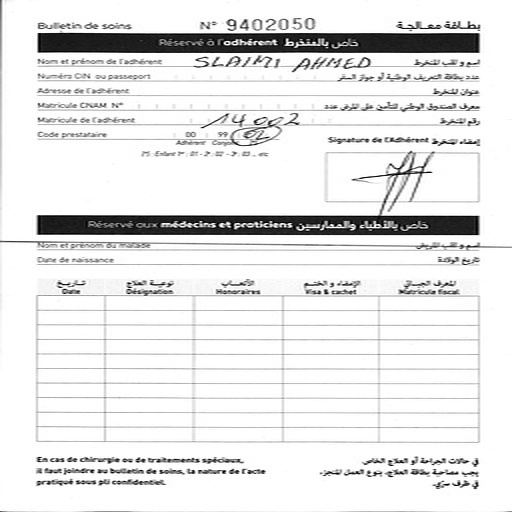 Bulletin de soins N° 9402050 بطاقة معالجة
Réservé à l'adhérent خاص بالمنخرط
Nom et prénom de l'adhérent SLAIMI AHMED اسم و لقب المنخرط
Numéro CIN ou passeport عدد بطاقة التعريف الوطنية أو جواز السفر
Adresse de l'adhérent عنوان المنخرط
Matricule CNAM N° معرف الصندوق الوطني للتأمين على المرض عدد
Matricule de l'adhérent 14002 رقم المنخرط
Code prestataire 00 99 02
Adhérent Conjoint
Signature de l'Adhérent إمضاء المنخرط
Réservé aux médecins et proticiens خاص بالأطباء والممارسين
Nom et prénom du malade اسم و لقب المريض
Date de naissance تاريخ الولادة
تاريخ نوعية العلاج الأتعاب الإمضاء و الختم المعرف الجبائي
Date Désignation Honoraires Visa & cachet Matricule fiscal
En cas de chirurgie ou de traitements spéciaux,
il faut joindre au bulletin de soins, la nature de l'acte
pratiqué sous pli confidentiel.
في حالات الجراحة أو العلاج الخاص
يجب مصاحبة بطاقة العلاج، بنوع العمل المنجز،
في ظرف سري.